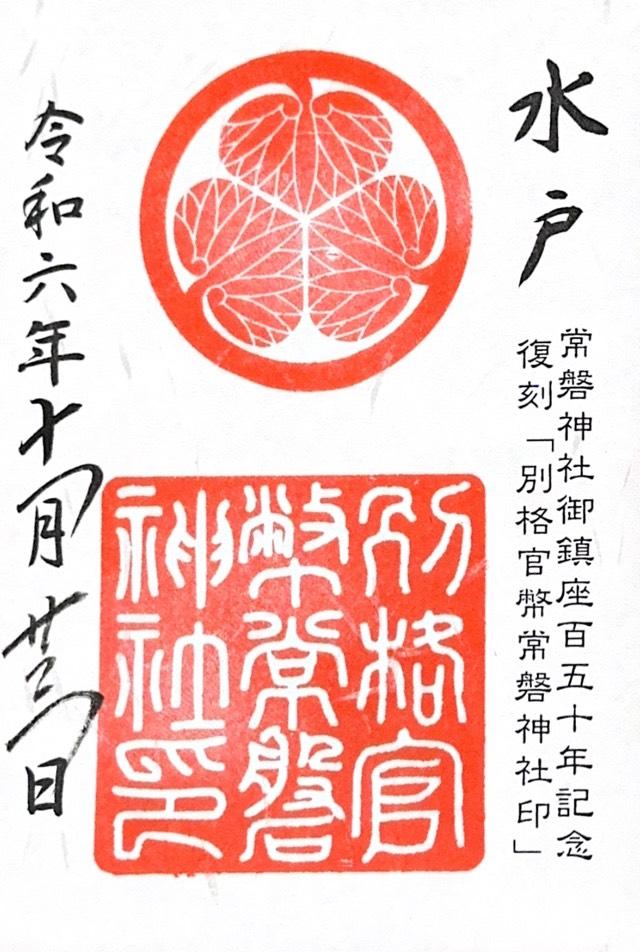 水戸
常磐神社御鎮座百五十年記念
復刻「別格官幣常磐神社印」
別格官
幣常磐
神社印
令和六年十月廿三日